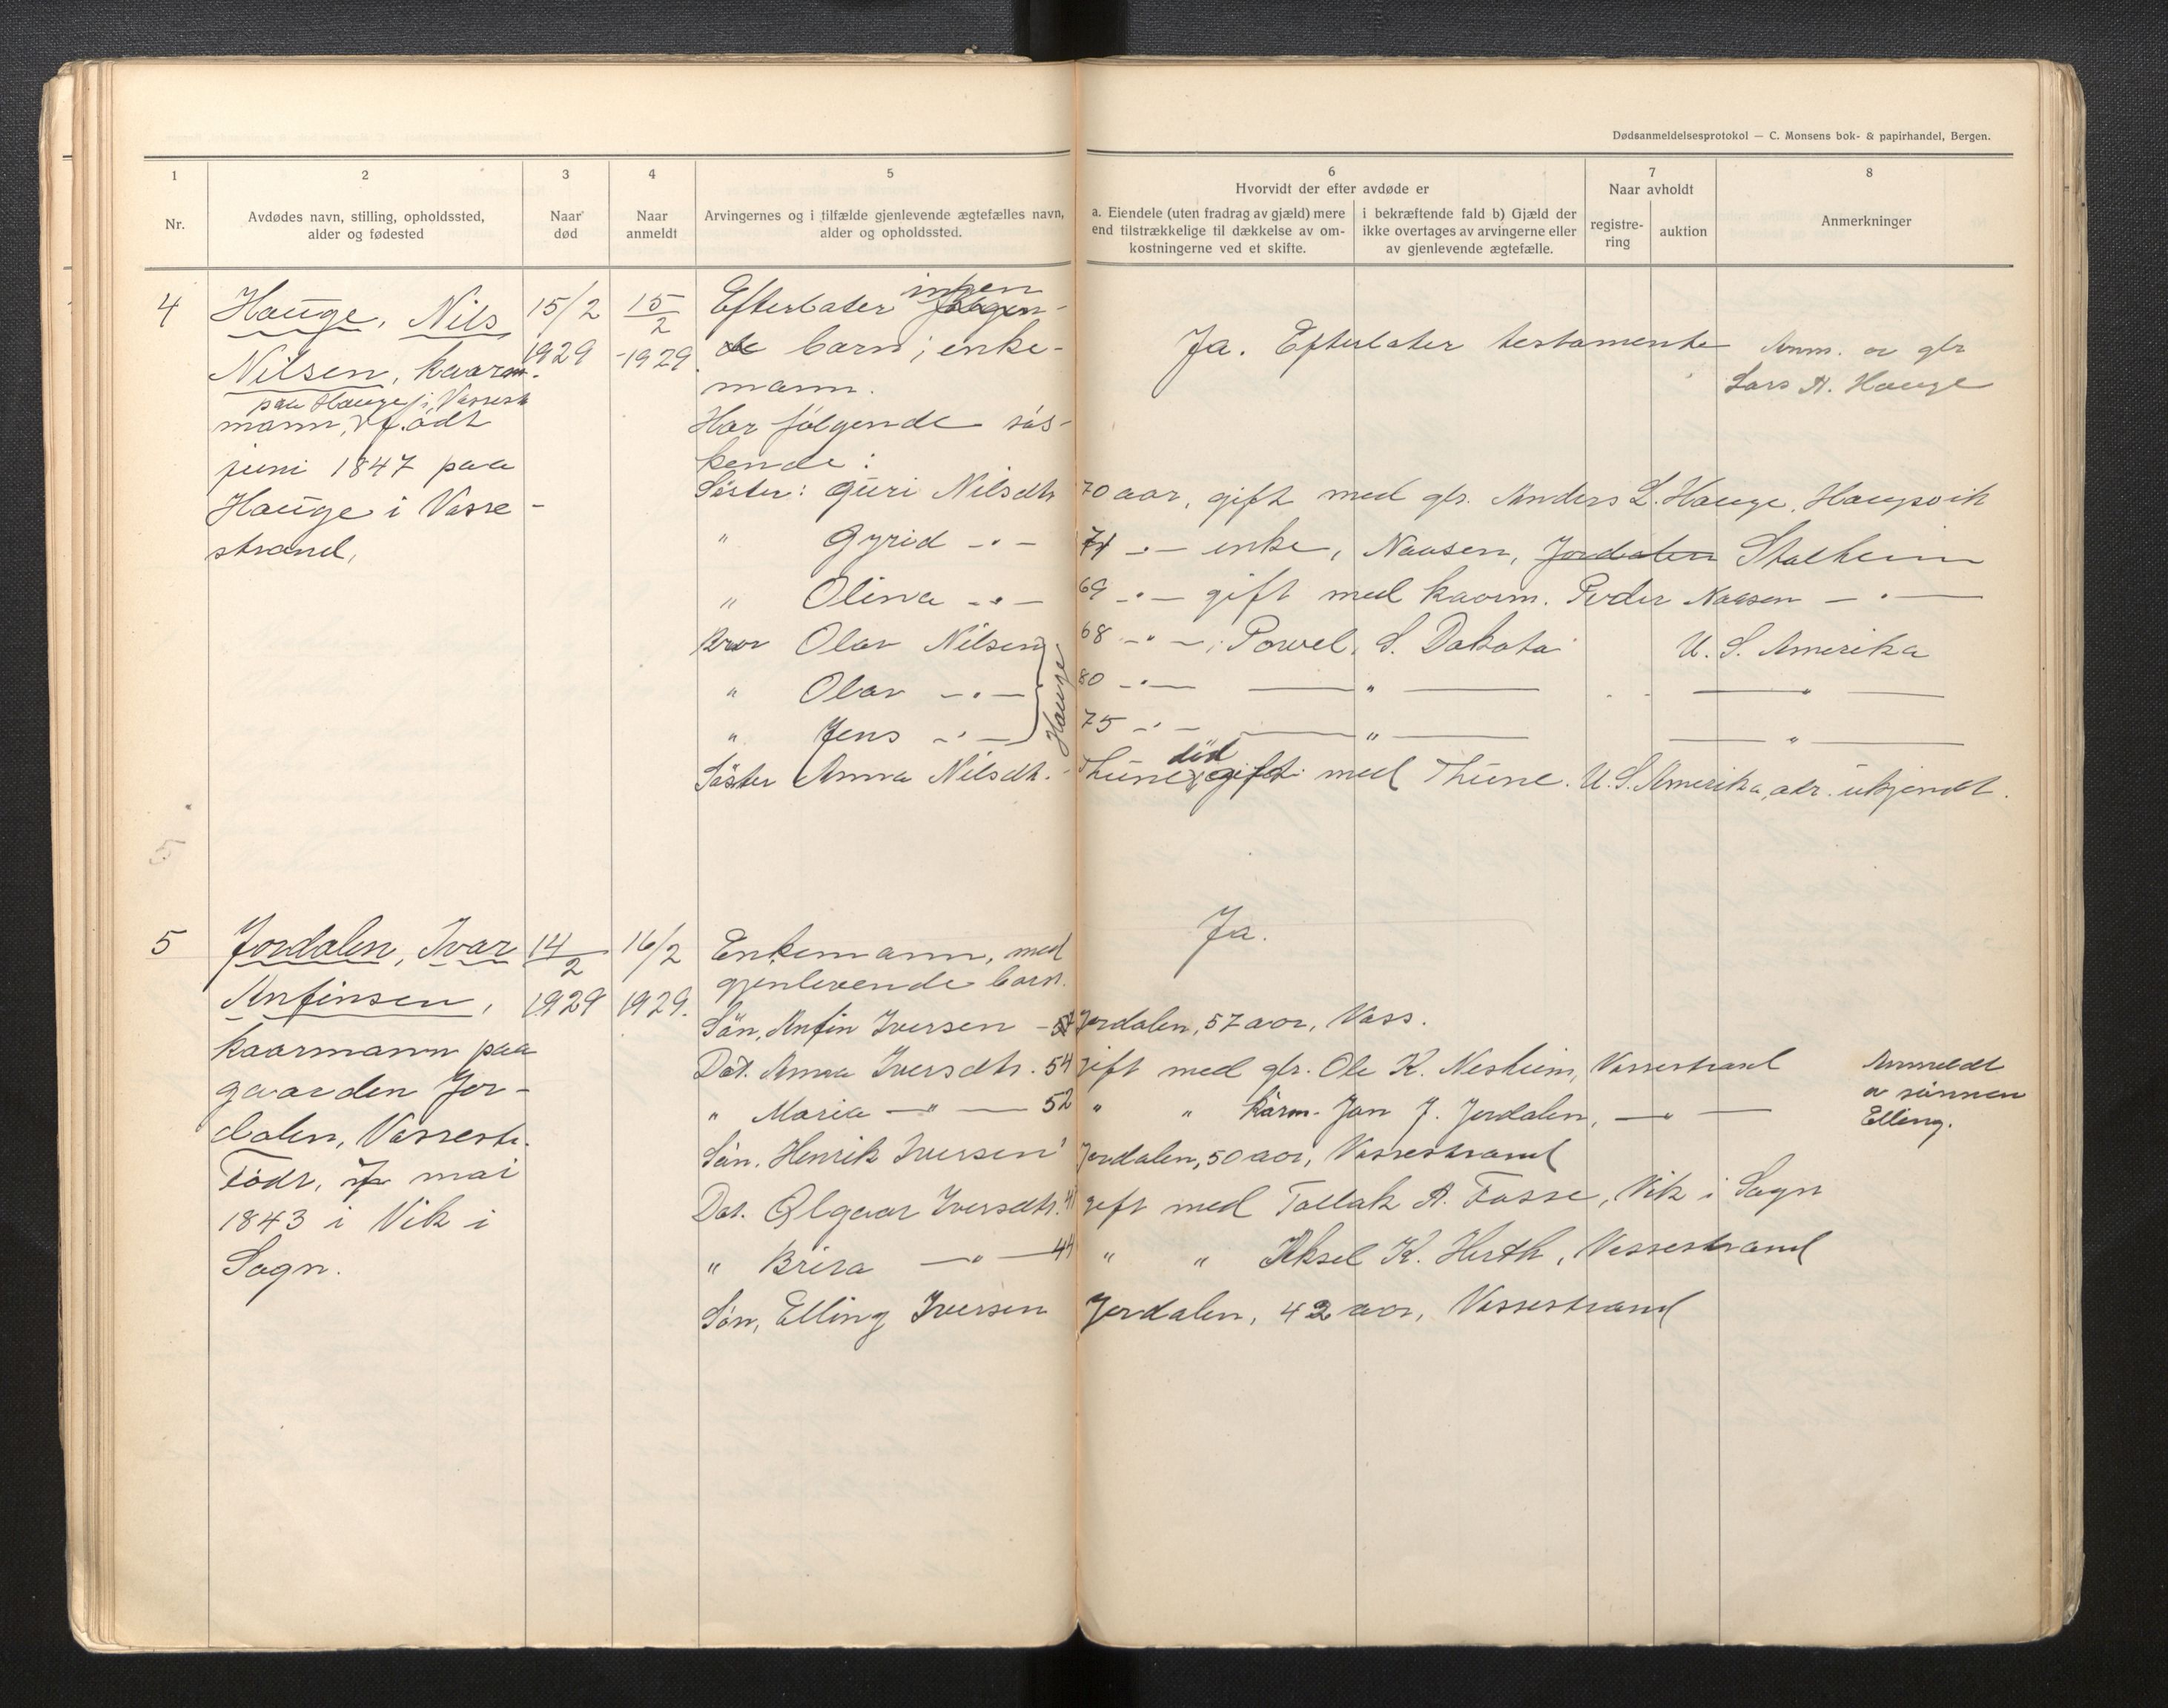 Dødsanmeldelsesprotokol — C. Monsens bok- & papirhandel, Bergen.
1 2 3 4 5 6 7 8
Nr.
Avdødes navn, stilling, opholdssted,
alder og fødested
Naar
død
Naar
anmeldt
Arvingernes og i tilfælde gjenlevende ægtefælles navn,
alder og opholdssted.
Hvorvidt der efter avdøde er
a. Eiendele (uten fradrag av gjæld) mere
end tilstrækkelige til dækkelse av om-
kostningerne ved et skifte.
i bekræftende fald b) Gjæld der
ikke overtages av arvingerne eller
av gjenlevende ægtefælle.
Naar avholdt
registre-
ring
auktion
Anmerkninger
4
Hauge, Nils
Nilsen, kaar
paa Hauge i Vassest
mann, født
juni 1847 paa
Hauge i Vasse-
strand,
15/2
1929
15/2
-1929
Efterlater ingen følgen-
de barn; enke-
mann.
Har følgende søs-
kende:
Ja. Efterlater testamente
Anm. av gbr
Lars N. Hauge
Søster: Guri Nilsdtr 70 aar, gift med gbr. Anders L. Hauge, Haugsvik
" Gyrid -"- 71 -"- enke, Naasen, Jordalen Stalheim
" Olina -"- 69 -"- gift med kaarm. Peder Naasen -"-
Bror Olav Nilsen 68 -"-, Powel, S. Dakota U. S. Amerika
" Olav -"- 80 -"- -"- -"-
" Jens -"- 75 -"- -"- -"-
Hauge
Søster Anna Nilsdtr. - Thune, død gift med Thune. U. S. Amerika, adr. ukjendt.
5
5
Jordalen, Ivar
Anfinsen,
kaarmann paa
gaarden Jor-
dalen, Vassestr.
Født, 7 mai
1843 i Vik i
Sogn.
14/2
1929
16/2
1929.
Enkemann, med
gjenlevende barn.
Ja.
Søn, Anfin Iversen - 57 Jordalen, 57 aar, Vass.
Dat. Anna Iversdtr. 54 gift med gbr. Ole K. Nesheim, Vassestrand
" Maria -"- 52 " " kårm. Jon J. Jordalen, -"-
Søn. Henrik Iversen Jordalen, 50 aar, Vassestrand
Dat. Olgaar Iversdtr. gift med Tollak A. Fosse, Vik i Sogn
" Brita -"- 44 " " Aksel K. Herth, Vassestrand
Søn, Elling Iversen Jordalen, 42 aar, Vassestrand
Anmeldt
av sønnen
Elling.